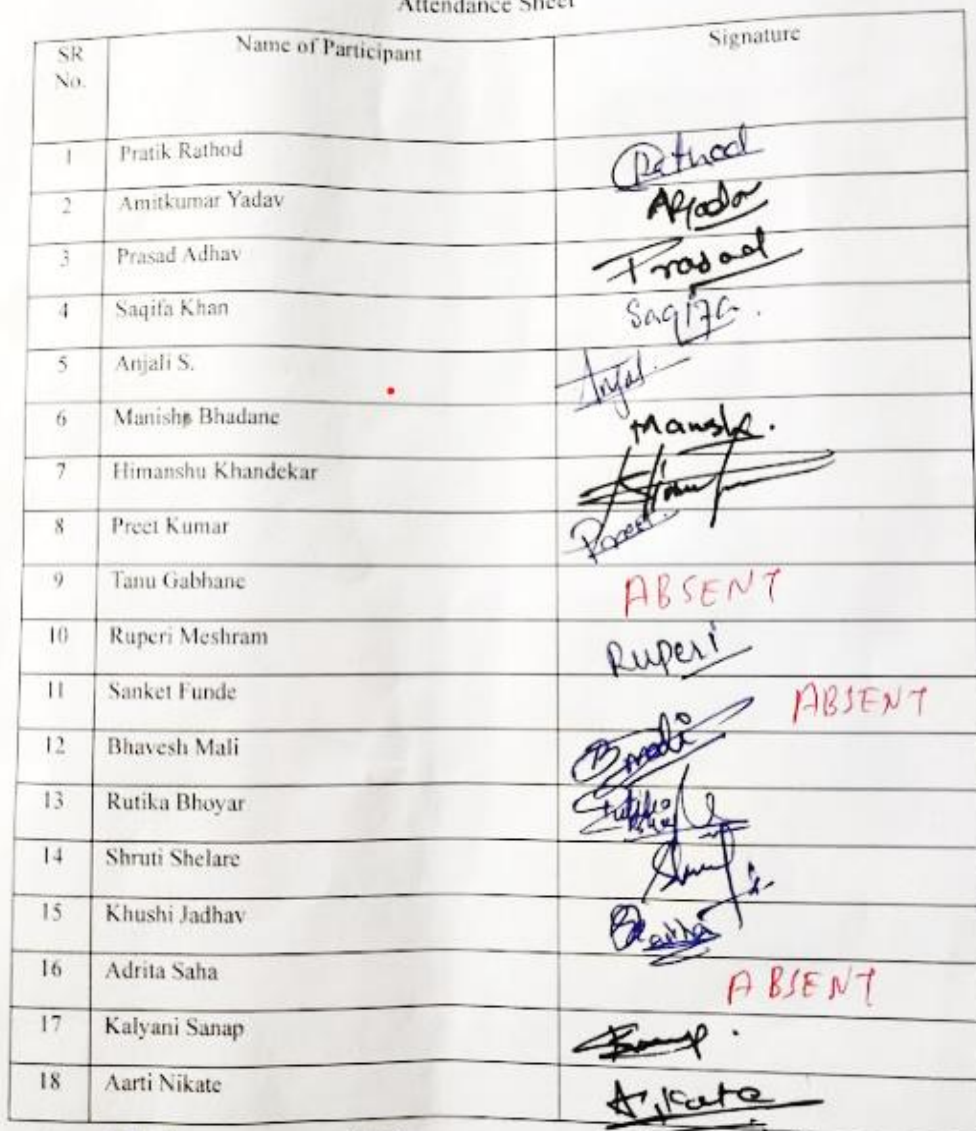 Attendance Sheet
SR No. Name of Participant Signature
1 Pratik Rathod Rathod
2 Amitkumar Yadav AYadav
3 Prasad Adhav Prasad
4 Saqifa Khan Saqifa.
5 Anjali S. Anjal
6 Manisha Bhadane
7 Himanshu Khandekar
8 Preet Kumar Preet
9 Tanu Gabhane ABSENT
10 Ruperi Meshram Ruperi
11 Sanket Funde ABSENT
12 Bhavesh Mali
13 Rutika Bhoyar
14 Shruti Shelare
15 Khushi Jadhav
16 Adrita Saha ABSENT
17 Kalyani Sanap
18 Aarti Nikate